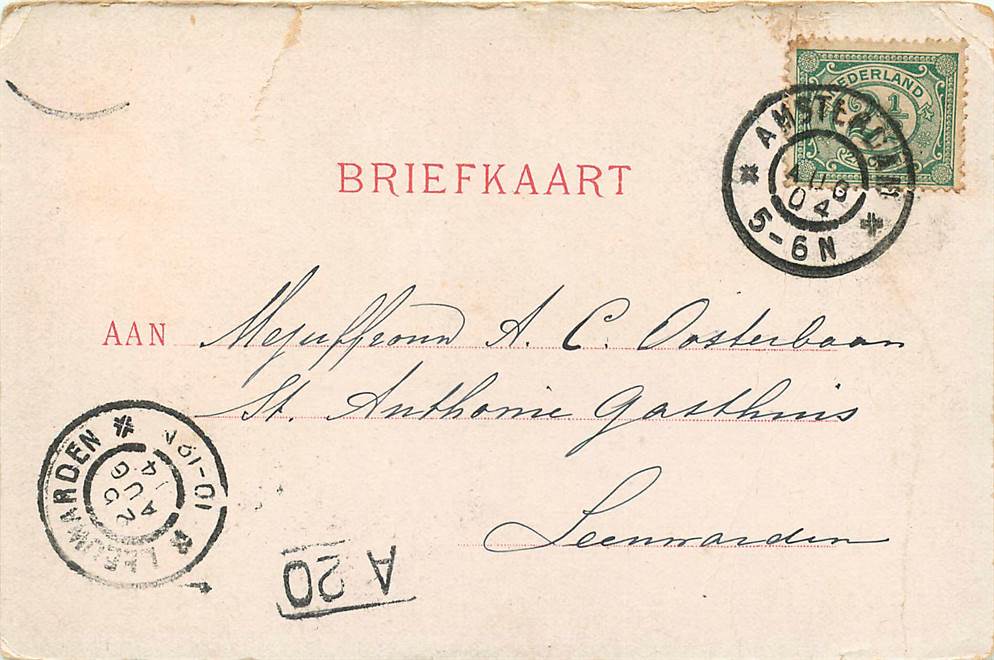 NEDERLAND
2 1/2
AMSTERDAM
AUG
04
5-6N
BRIEFKAART
AAN Mejuffrouw A. C. Oosterbaan
St. Anthonie Gasthuis
Leeuwarden
LEEUWARDEN
25
AUG
4
10-12N
A 20